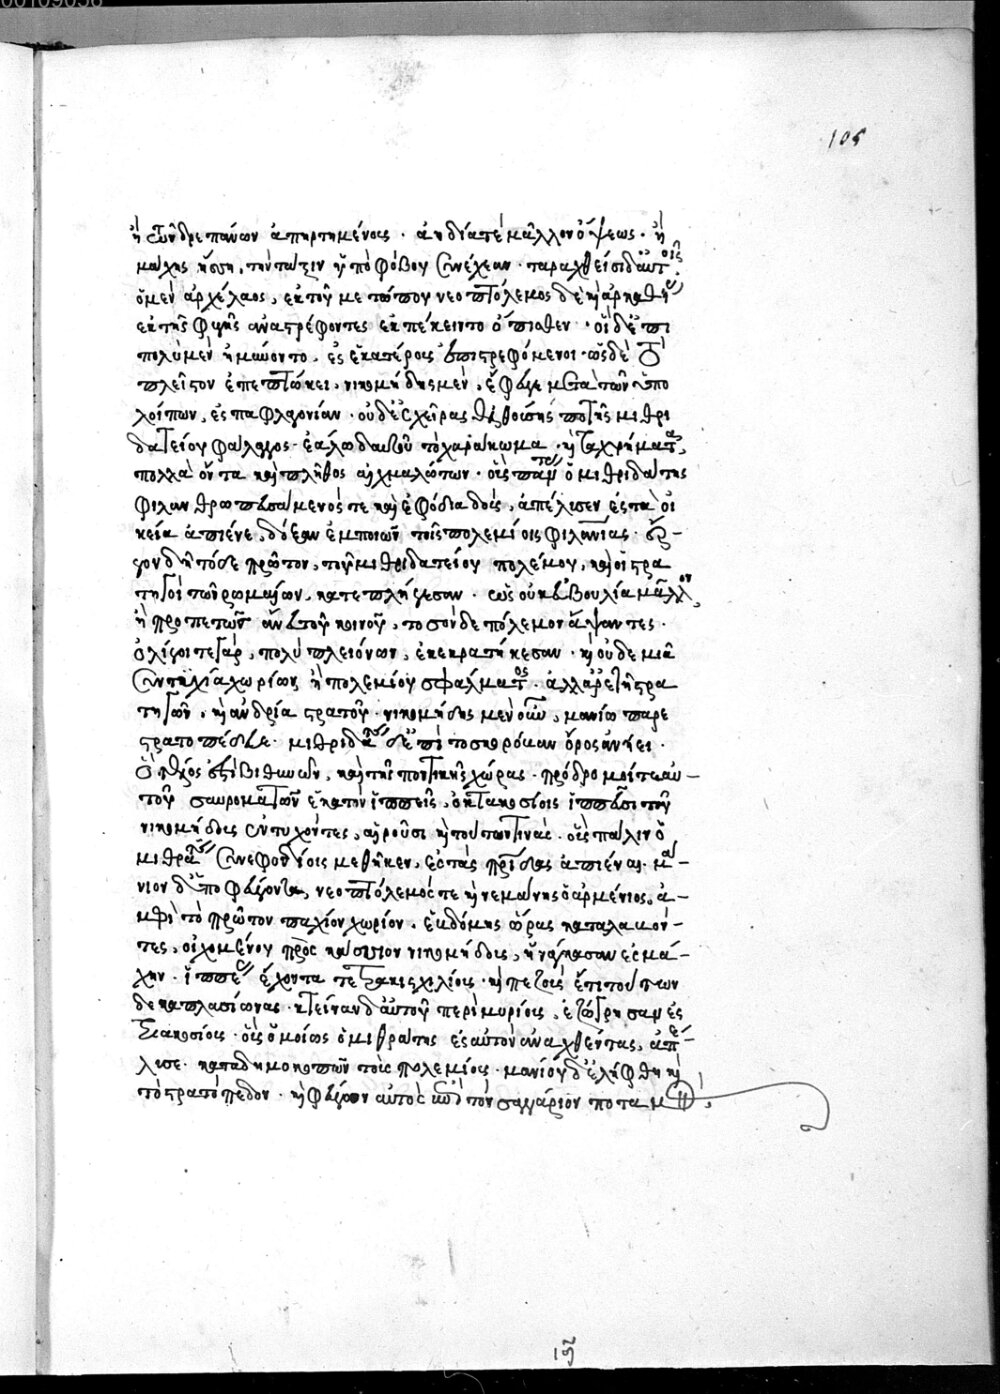 105
ἢ τῶν δρεπάνων ἀπηρτημένους. ἀηδίᾳ τε μᾶλλον ὄψεως. ἢ
μάχης ἥσσῃ, τὴν τάξιν ὑπὸ φόβου συνέχεαν. ταραχθεῖσι δ' αὐτοῖς
ὁ μὲν ἀρχέλαος, ἐκ τοῦ μετώπου νεοπτόλεμος δὲ καὶ ἀρκαθίας
ἐκ τῆς φυγῆς ἀναστρέφοντες ἐπέκειντο ὄπισθεν. οἱ δ' ἐπὶ
πολὺ μὲν ἠμύνοντο. ἐς ἑκατέρους ἐπιστρεφόμενοι. ὡς δὲ τὸ
πλεῖστον ἐπεπτώκει, νικομήδης μὲν, ἔφευγε μετὰ τῶν ὑπο
λοίπων, ἐς παφλαγονίαν. οὐδ' ἐς χεῖρας ἐλθούσης πω τῆς μιθρι
δατείου φάλαγγος. ἑάλω δ' αὐτοῦ τὸ χαράκωμα. καὶ τὰ χρήματα
πολλὰ ὄντα καὶ πλῆθος αἰχμαλώτων. οὓς πάντας ὁ μιθριδάτης
φιλανθρωπευσάμενός τε καὶ ἐφόδια δοὺς, ἀπέλυσεν ἐς τὰ οἰ
κεῖα ἀπιέναι, δόξαν ἐμποιῶν τοῖς πολεμίοις φιλανθρωπίας. ἔρ-
γον δὴ τόδε πρῶτον, τοῦ μιθριδατείου πολέμου, καὶ οἱ στρα
τηγοὶ τῶν ῥωμαίων, κατεπλήγεσαν. ὡς οὐκ εὐβουλίᾳ μᾶλλον
ἢ προπετῶς ἄνευ τοῦ κοινοῦ, τοσόνδε πόλεμον ἅψαντες.
ὀλίγοι τε γὰρ, πολὺ πλειόνων, ἐκεκρατήκεσαν. καὶ οὐδεμιᾷ
συντυχίᾳ χωρίων ἢ πολεμίου σφάλματος. ἀλλὰ ἀρετῇ στρα
τηγῶν. καὶ ἀνδρίᾳ στρατοῦ. νικομήδης μὲν οὖν, μανίῳ παρε
στρατοπέδευε. μιθριδάτης δὲ ἐπὶ τὸ σκορόμαν ὄρος ἀνῄει.
ὃ τέλος ἐστὶ βιθυνῶν, καὶ τῆς ποντικῆς χώρας. πρόδρομοί τε αὐ-
τοῦ σαυροματῶν ἑκατὸν ἱππεῖς, ὀκτακοσίοις ἱππεῦσι τοῦ
νικομήδους ἐντυχόντες, αἱροῦσι καί τινας. οὓς πάλιν ὁ
μιθριδάτης σὺν ἐφοδίοις μεθῆκεν, ἐς τὰς πατρίδας ἀπιέναι. μά-
νιον δ' ὑποφεύγοντα, νεοπτόλεμός τε καὶ νεμάνης ὁ ἀρμένιος, ἀ-
μφὶ τὸ πρῶτον παχίον χωρίον. ἑβδόμης ὥρας καταλαβόν-
τες, οἰχομένου πρὸς κάσσιον νικομήδους, ἠνάγκασαν ἐς μά-
χην. ἱππέας ἔχοντα τετρακισχιλίους. καὶ πεζοὺς ἐπὶ τούτων
δεκαπλασίονας. κτείναν δ' αὐτοῦ περὶ μυρίους, ἐζώγρησαν ἐς
τριακοσίους. οὓς ὁμοίως ὁ μιθριδάτης ἐς αὑτὸν ἀναχθέντας, ἀπέ-
λυσε. καταδημοκοπῶν τοὺς πολεμίους. μανίου δ' ἐλήφθη καὶ
τὸ στρατόπεδον. καὶ φεύγων αὐτὸς ἐπὶ τὸν σαγγάριον ποταμὸν,